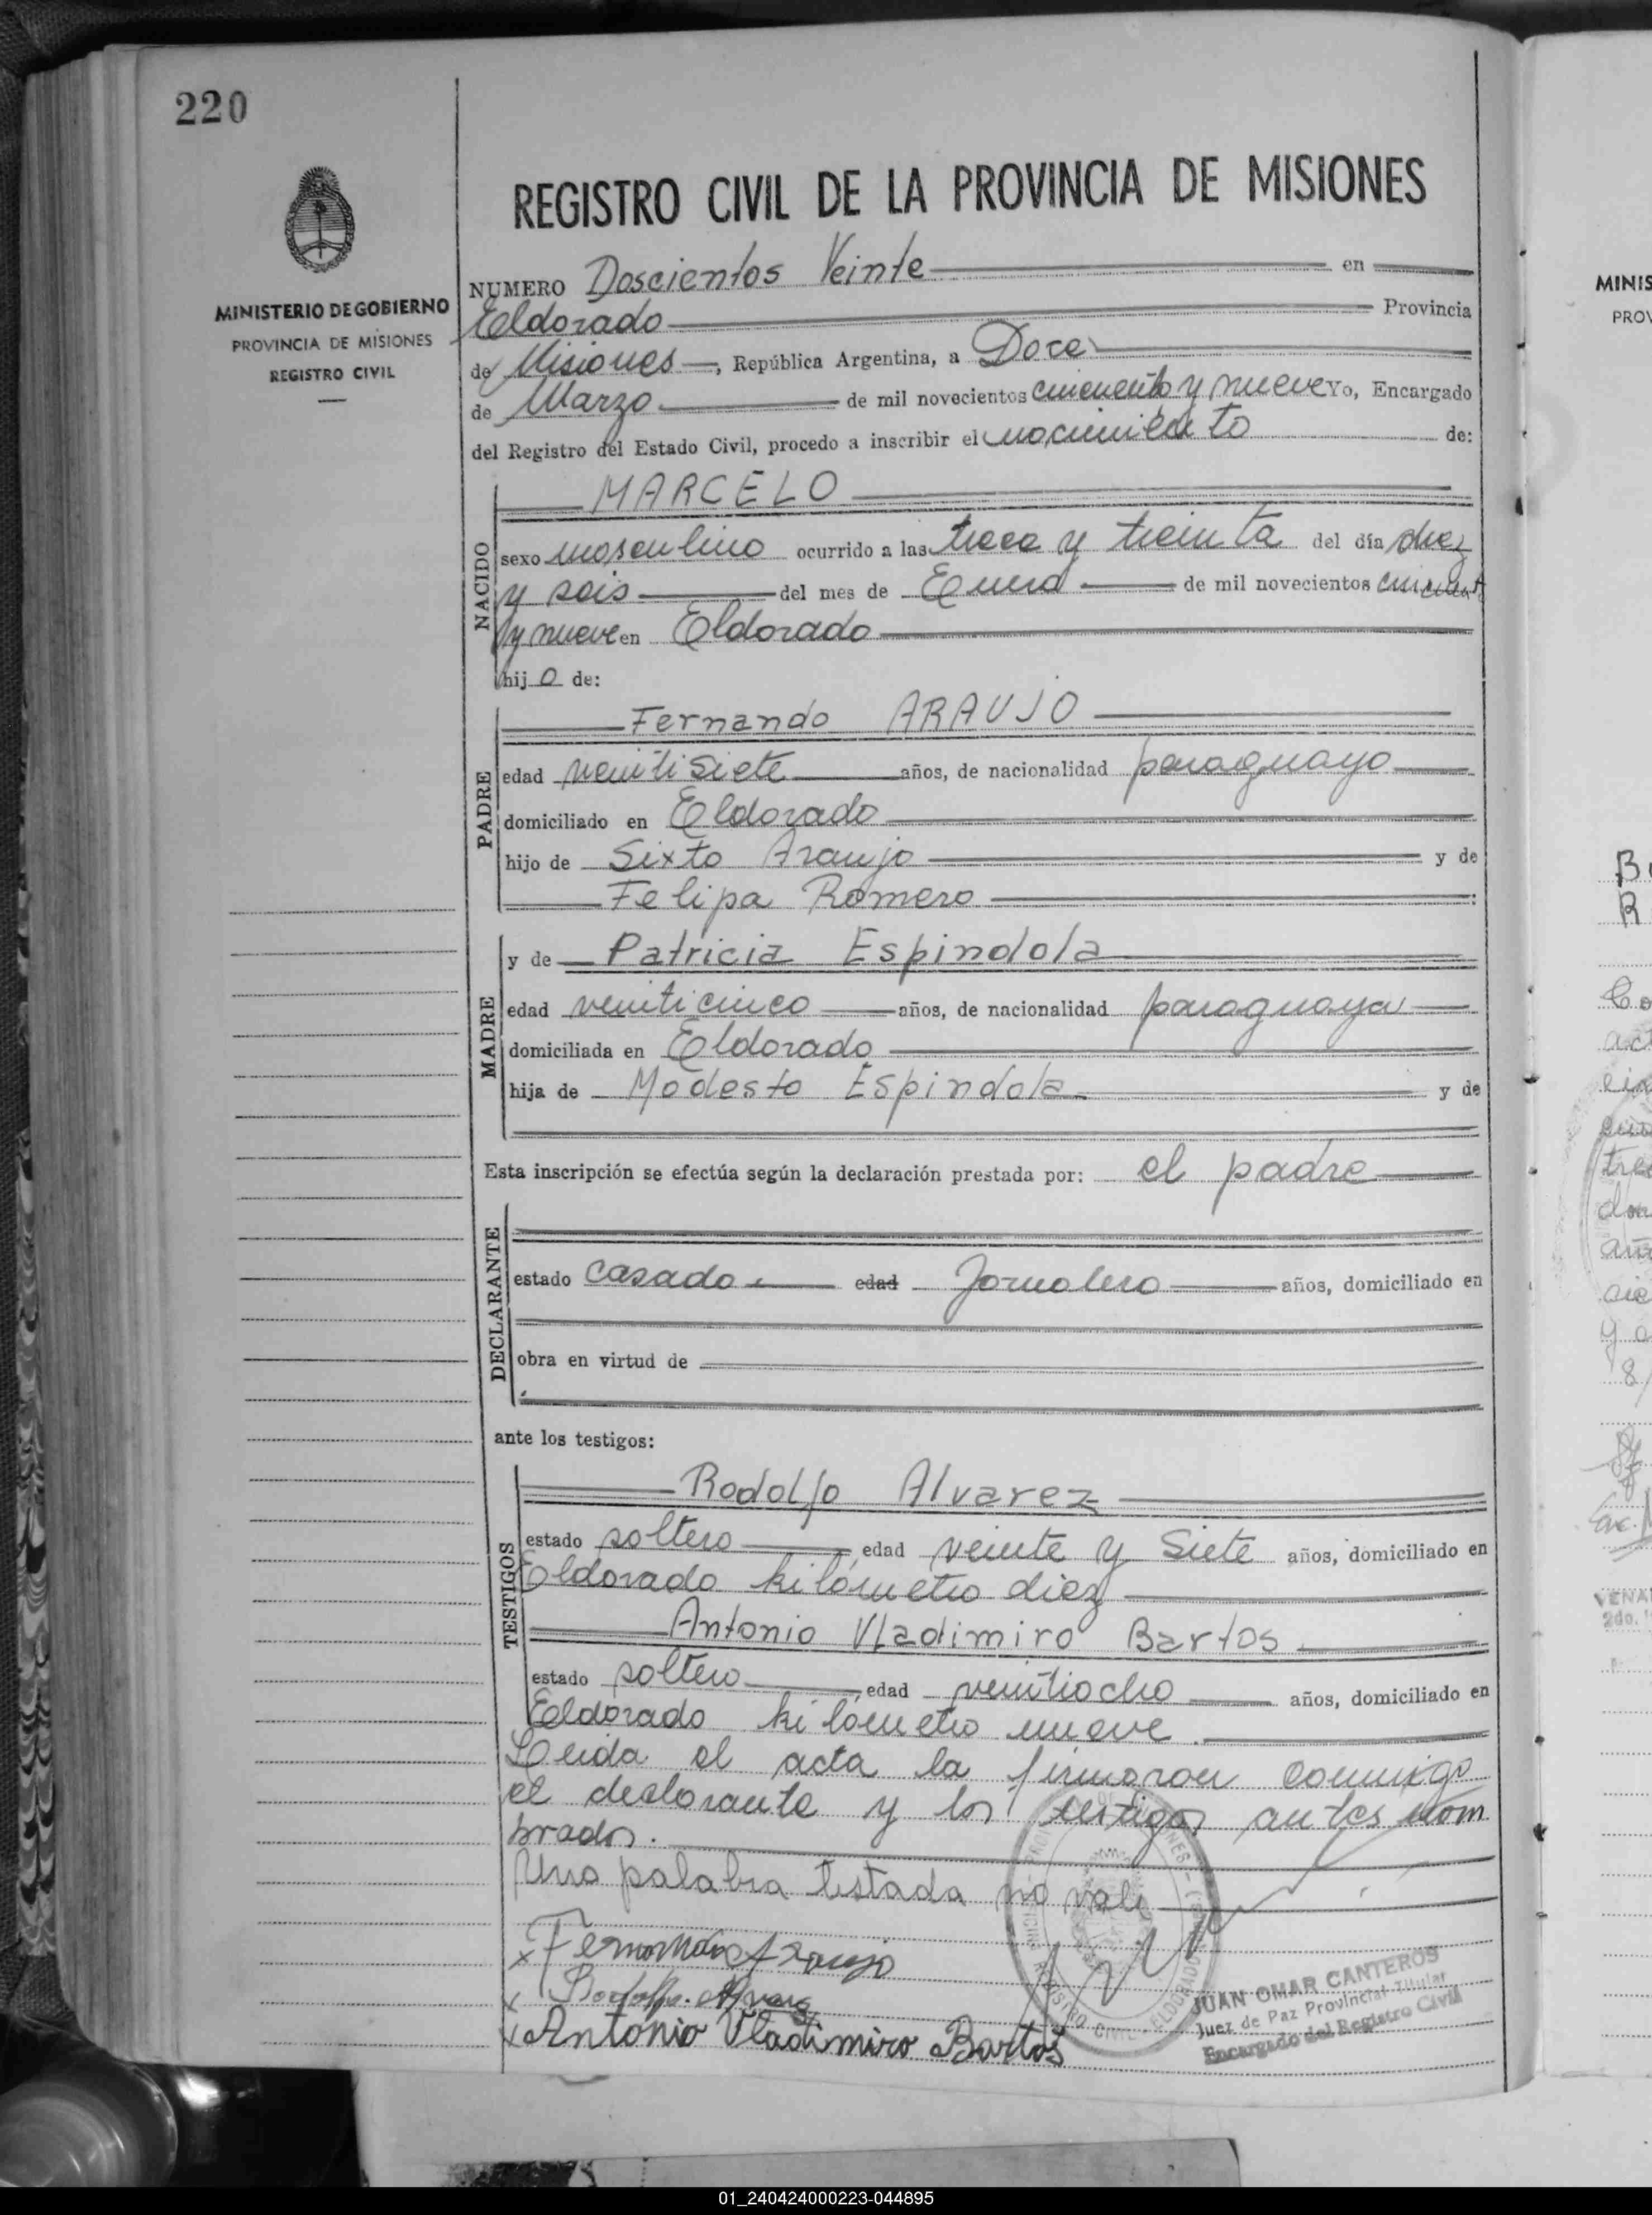 220
REGISTRO CIVIL DE LA PROVINCIA DE MISIONES
MINISTERIO DE GOBIERNO
PROVINCIA DE MISIONES
REGISTRO CIVIL
NUMERO Doscientos Veinte en
Eldorado Provincia
de Misiones, República Argentina, a Doce
de Marzo de mil novecientos cincuenta y nueve Yo, Encargado
del Registro del Estado Civil, procedo a inscribir el nacimiento de:
NACIDO
MARCELO
sexo masculino ocurrido a las trece y treinta del día diez
y seis del mes de Enero de mil novecientos cincuent
y nueve en Eldorado
hijo de:
PADRE
Fernando ARAUJO
edad veintisiete años, de nacionalidad paraguayo
domiciliado en Eldorado
hijo de Sixto Araujo y de
Felipa Romero
MADRE
y de Patricia Espindola
edad veinticinco años, de nacionalidad paraguaya
domiciliada en Eldorado
hija de Modesto Espindola y de
Esta inscripción se efectúa según la declaración prestada por: el padre
DECLARANTE
estado casado edad Jornalero años, domiciliado en
obra en virtud de
ante los testigos:
TESTIGOS
Rodolfo Alvarez
estado soltero, edad veinte y Siete años, domiciliado en
Eldorado kilómetro diez
Antonio Vladimiro Bartos
estado soltero, edad veintiocho años, domiciliado en
Eldorado kilómetro nueve
Leida el acta la firmaron conmigo
el declarante y los testigos antes nom
brados.
Una palabra testada no vale
x Fernando Araujo
x Rodolfo Alvarez
x Antonio Vladimiro Bartos
JUAN OMAR CANTEROS
Juez de Paz Provincial Titular
Encargado del Registro Civil
MINIS
PROV
01_240424000223-044895